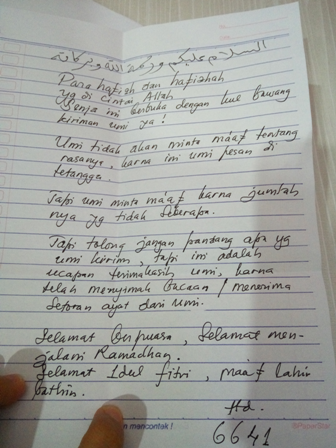 السلام عليكم ورحمة الله وبركاته
Para hafizh dan hafizhah
yg di cintai Allah
Senja ini berbuka dengan kue bawang
kiriman umi ya !
Umi tidak akan minta ma'af tentang
rasanya, karna ini umi pesan di
tetangga.
Tapi umi minta ma'af karna jumlah
nya yg tidak seberapa.
Tapi tolong jangan pandang apa yg
umi kirim, tapi ini adalah
ucapan terimakasih umi, karna
telah menyimak bacaan / menerima
setoran ayat dari umi.
Selamat berpuasa, selamat men-
jalani Ramadhan.
Selamat Idul fitri, ma'af lahir
bathin.
Ttd.
6641
n mencontak !